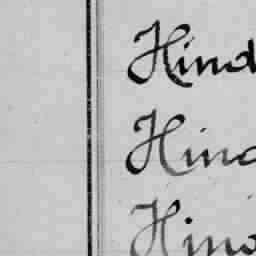 Hind
Hind
Hind